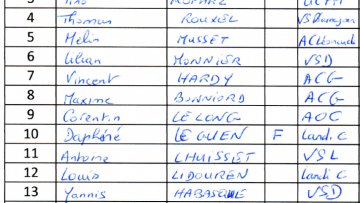 4 Thomas ROUXEL
5 Melin MUSSET
6 Lilian MONNIER VSD
7 Vincent HARDY ACG
8 Maxime BONNIORD ACG
9 Corentin LE LONG AOC
10 Daphéné LE GUEN F Landi. C
11 Antoine LHUISSIET VSL
12 Louis LIDOUREN Landi C
13 Yannis HABASQUE VSD